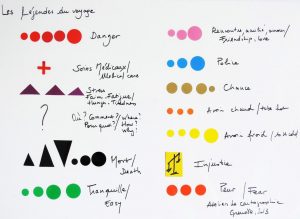 Les Légendes du voyage
Danger
Soins Médicaux/
Medical care
Stress
Faim, Fatigue/
Hunger, Tiredness
?
Où? Comment?/Where?
Pourquoi?/How?
Why?
Mort/
Death
Tranquille/
Easy
Rencontre, amitié, amour/
Friendship, love
Police
Chance
Avoir chaud/
Avoir froid/
Injustice
Peur/Fear
Atelier de cartographie
Grenoble,